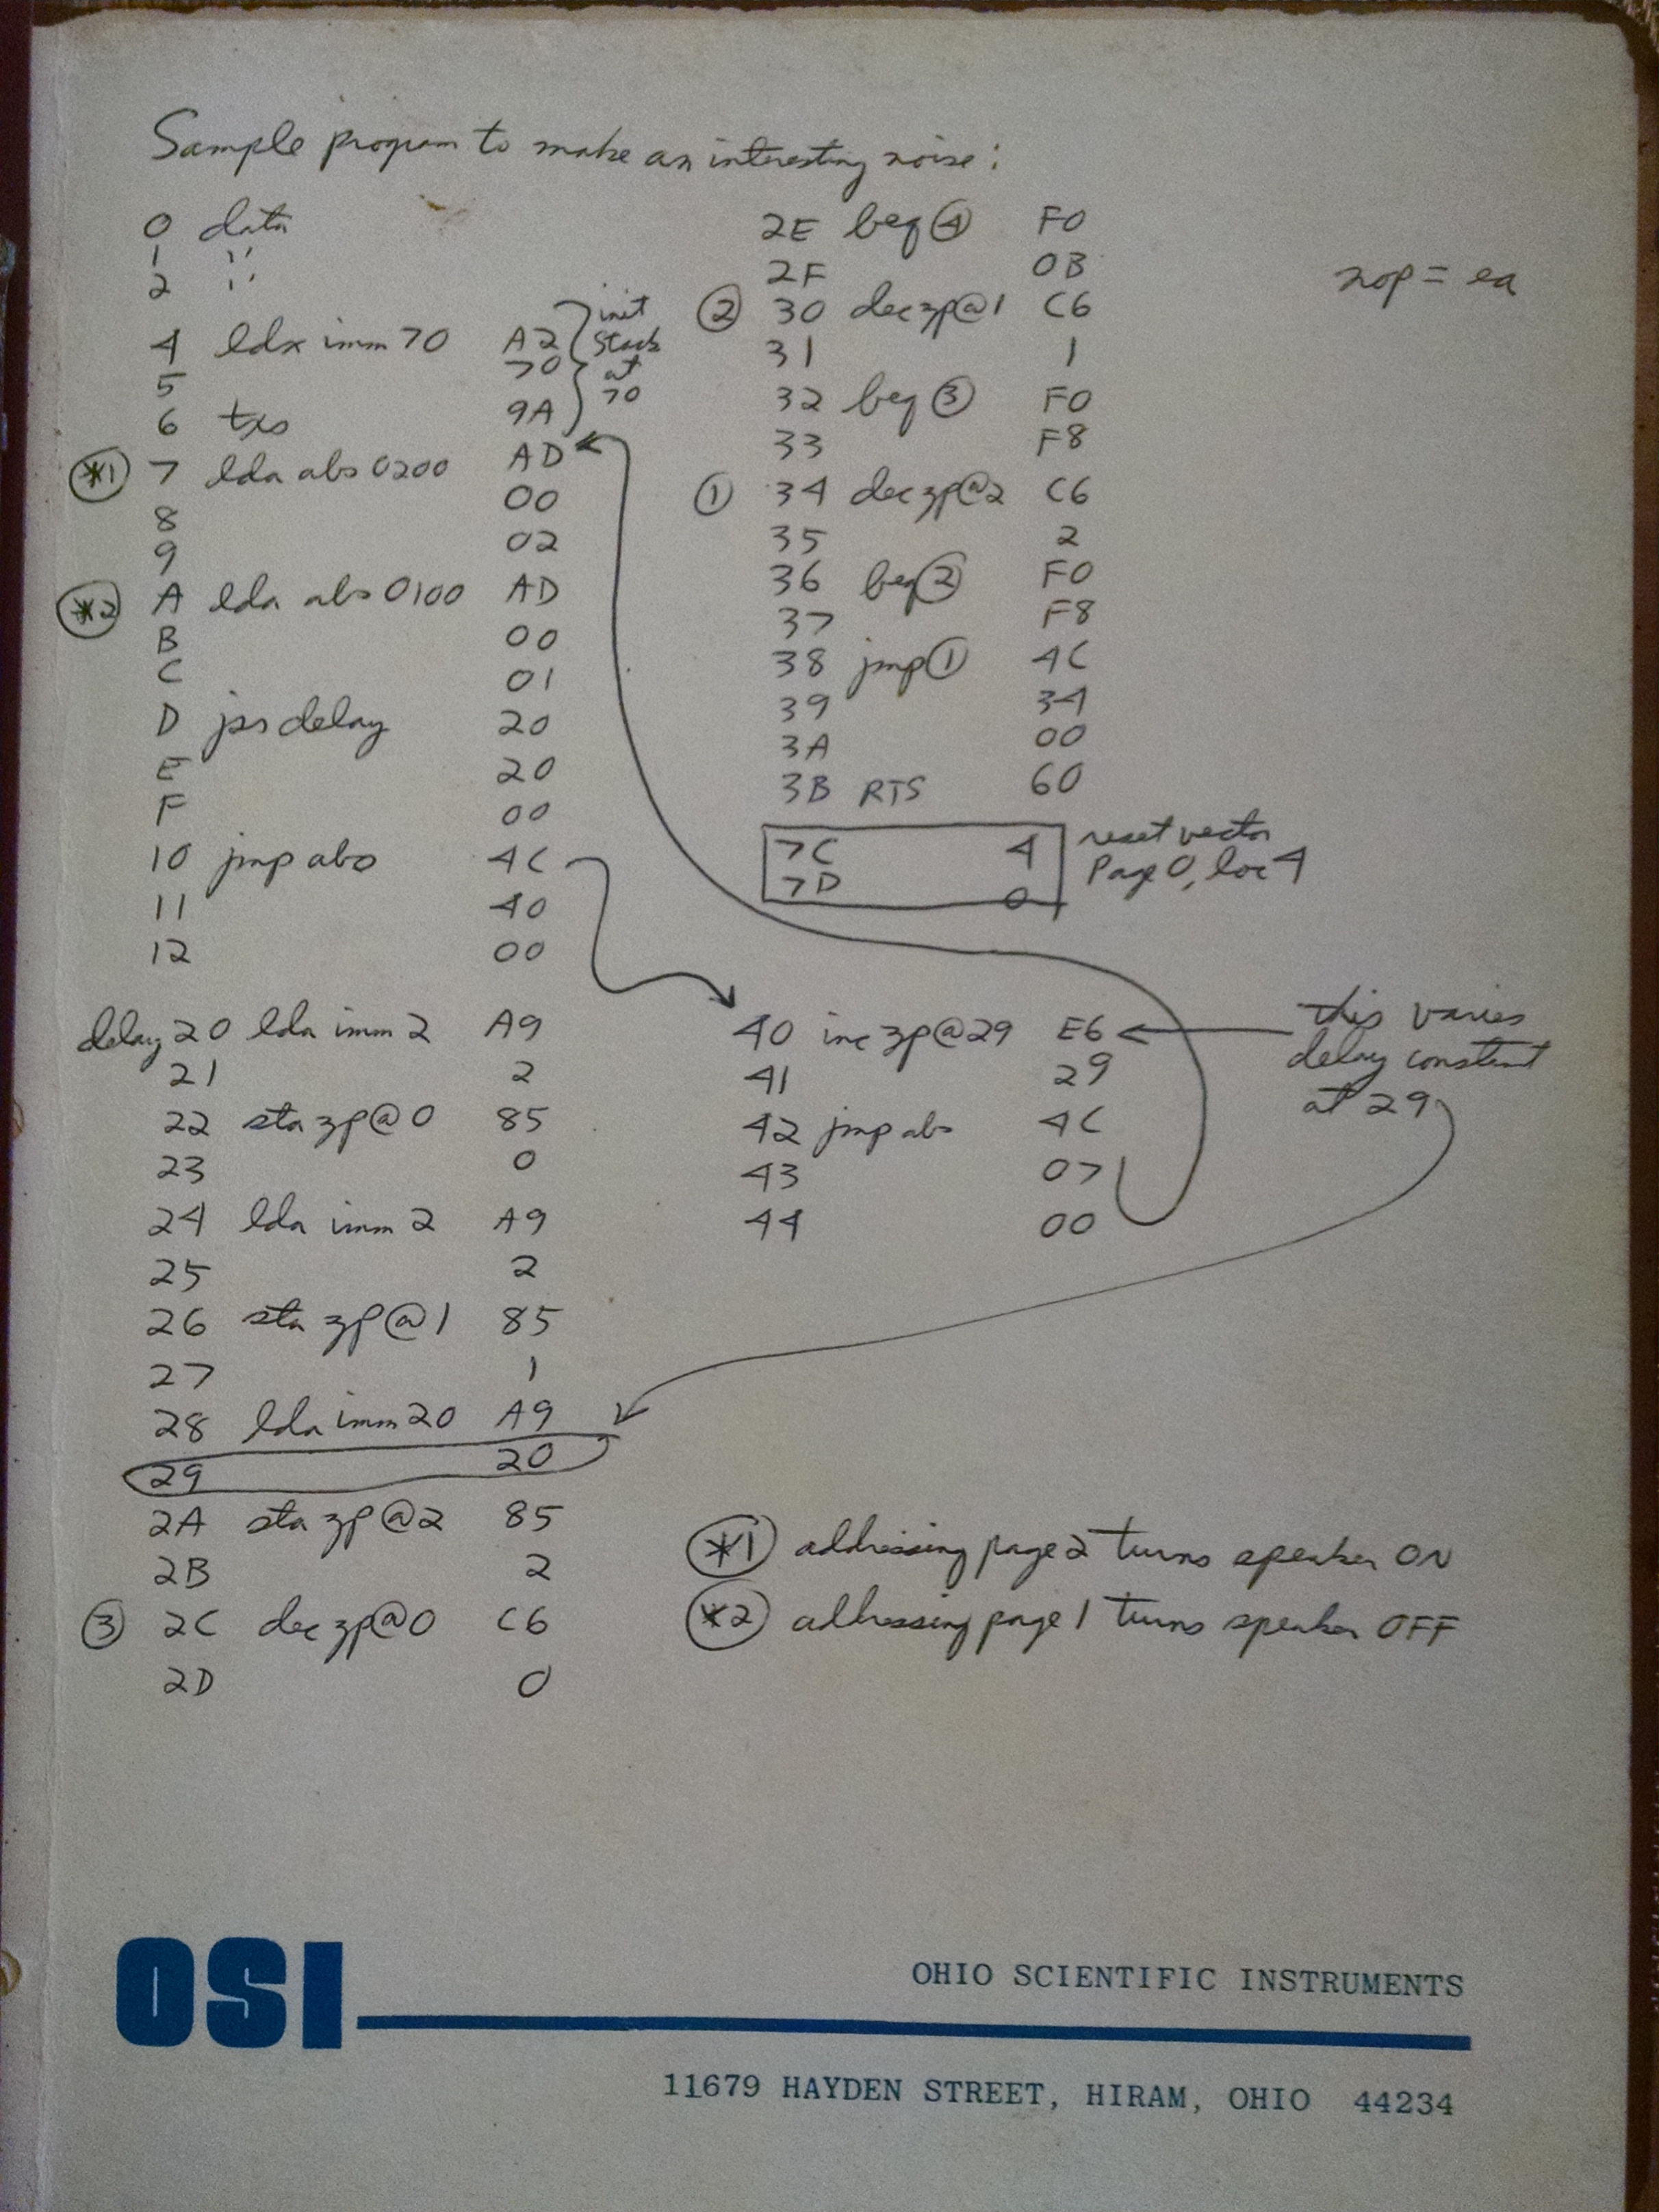 Sample program to make an interesting noise:
0 data
1 "
2 "
4 ldx imm 70 A2
5 70
6 txs 9A
init
stack
at
70
*1 7 lda abs 0200 AD
8 00
9 02
*2 A lda abs 0100 AD
B 00
C 01
D jsr delay 20
E 20
F 00
10 jmp abs 4C
11 40
12 00
delay 20 lda imm 2 A9
21 2
22 sta zp@0 85
23 0
24 lda imm 2 A9
25 2
26 sta zp@1 85
27 1
28 lda imm 20 A9
29 20
2A sta zp@2 85
2B 2
3 2C dec zp@0 C6
2D 0
2E beq 4 F0
2F 0B
2 30 dec zp@1 C6
31 1
32 beq 3 F0
33 F8
1 34 dec zp@2 C6
35 2
36 beq 2 F0
37 F8
38 jmp 1 4C
39 34
3A 00
3B RTS 60
7C 4
7D 0
reset vector
Page 0, loc 4
40 inc zp@29 E6
41 29
42 jmp abs 4C
43 07
44 00
this varies
delay constant
at 29
nop = ea
*1 addressing page 2 turns speaker ON
*2 addressing page 1 turns speaker OFF
OSI
OHIO SCIENTIFIC INSTRUMENTS
11679 HAYDEN STREET, HIRAM, OHIO 44234